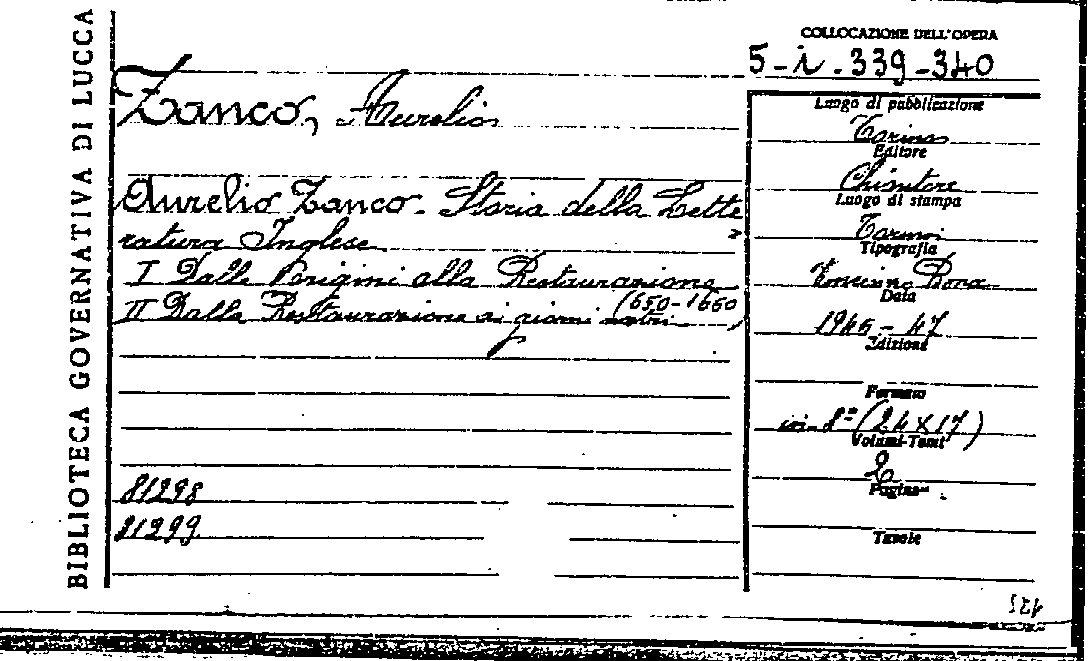 BIBLIOTECA GOVERNATIVA DI LUCCA
COLLOCAZIONE DELL'OPERA
5-i-339-340
Zanco, Aurelio
Aurelio Zanco. Storia della Lette
ratura Inglese
I Dalle Origini alla Restaurazione
(650-1660)
II Dalla Restaurazione ai giorni nostri
81298
81299
Luogo di pubblicazione
Torino
Editore
Chiantore
Luogo di stampa
Torino
Tipografia
Vincenzo Bona
Data
1946-47
Edizione
Formato
in-8º (24x17)
Volumi-Tomi
2
Pagine
Tavole